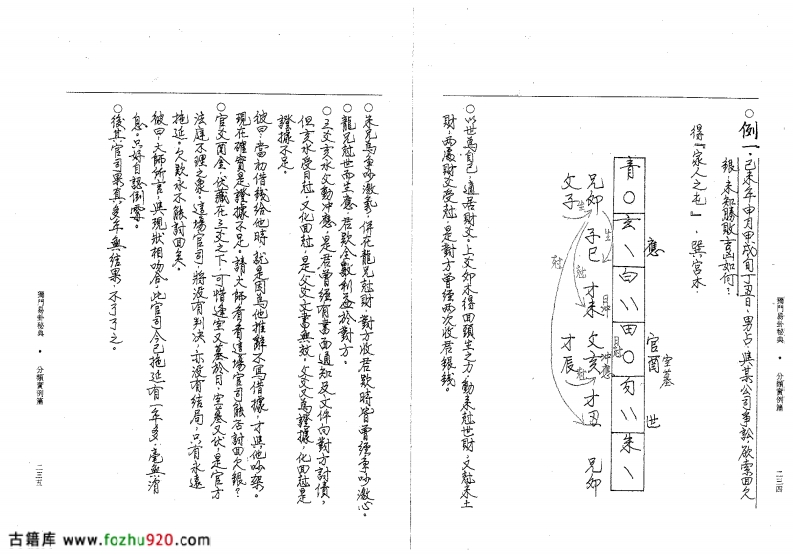 ○例一:己未年申月甲戌旬丁丑日,男占,與某公司爭訟,欲索回欠
銀,未知勝敗吉凶如何?
得『家人之屯』,巽宮木.
青 玄 白 由 勾 朱
應 世
兄卯 子巳 才未 文亥 才丑 兄卯
文子 才辰 官酉 空墓
生 生 尅 尅 日沖 日尅 沖應 尅
○以世為自己,遁居財文。上文卯木得回頭生之力,動來尅世財,又尅未土
財,兩處財文受尅,是對方曾經兩次收君銀錢。
獨門易卦秘典 • 分類實例篇 二三四
○朱兄為爭吵激氣,併在龍兄尅財,對方收君欵時皆曾經爭吵激心。
○龍兄尅世而生應,君欵全數利益於對方。
○三文亥水文動沖應,是君曾經有書面通知及文件向對方討債,
但亥水受日尅,文化回尅,是文文上書無效。文文又為證據,化回尅是
證據不足。
彼曰,當初借錢給他時,就是因為他推辭不寫借據,才與他吵架。
現在確實是證據不足。請大師看看這場官司能否討回欠銀?
○官文酉金,伏藏在三文之下,可惜逢空又墓於日,空墓又伏,是官方
法庭不理之象,這場官司,將沒有判決,亦沒有結局,只有永遠
拖延。欠欵永不能討回矣。
彼曰,大師所言,與現狀相吻合,此官司今已拖延有一年多,毫無消
息。只好自認倒霉。
○後其官司果真多年無結果,不了了之。
獨門易卦秘典 • 分類實例篇 二三五
古籍库 www.fozhu920.com